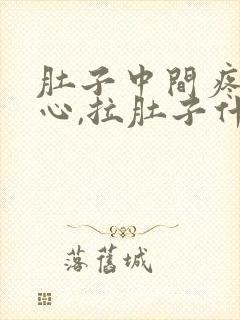 肚子中間疼
心,拉肚子什
落舊城